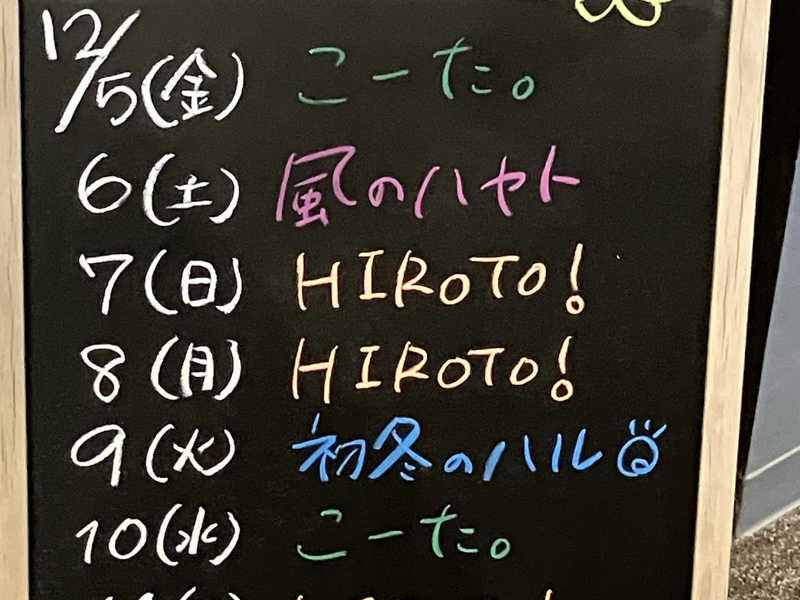 12/5(金) こーた。
6(土) 風のハヤト
7(日) HIROTO!
8(月) HIROTO!
9(火) 初冬のハル
10(水) こーた。